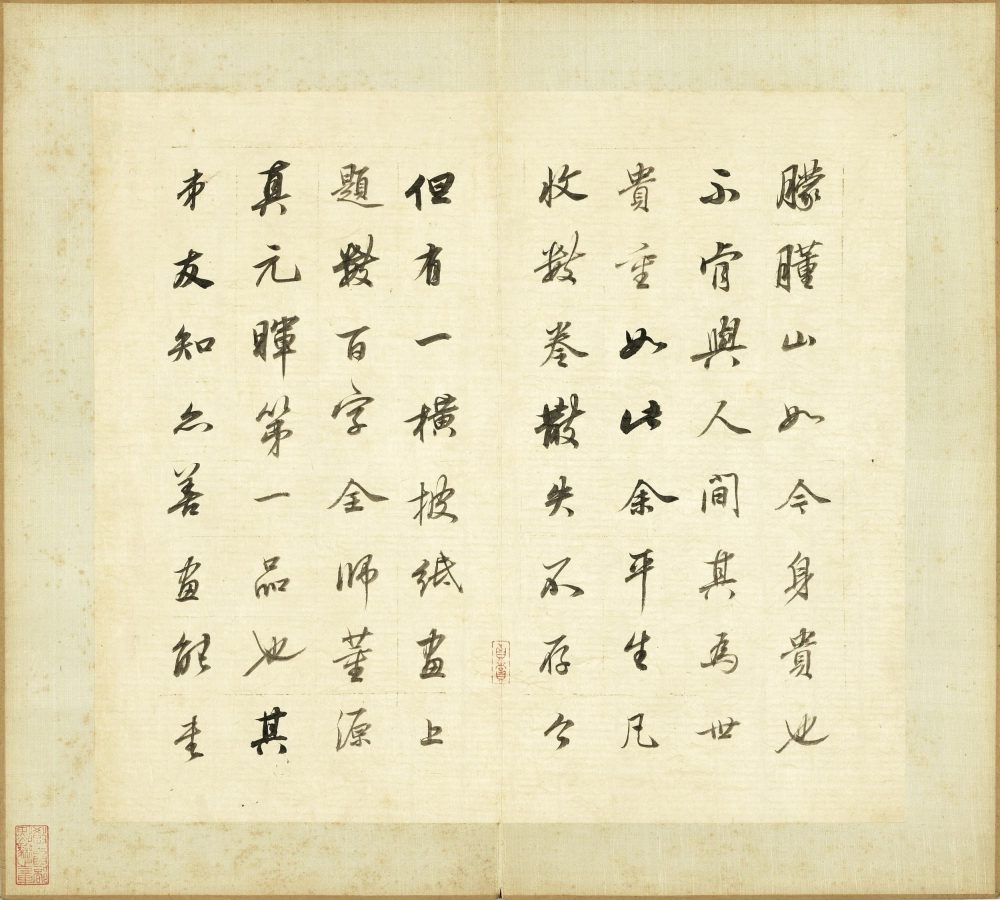 朦山如今身貴也
不肯與人間其為世
貴重如此余平生凡
收數卷散失不存今
但有一橫披紙畫上
題數百字全師董源
真元暉第一品也其
弟友知亦善畫能書